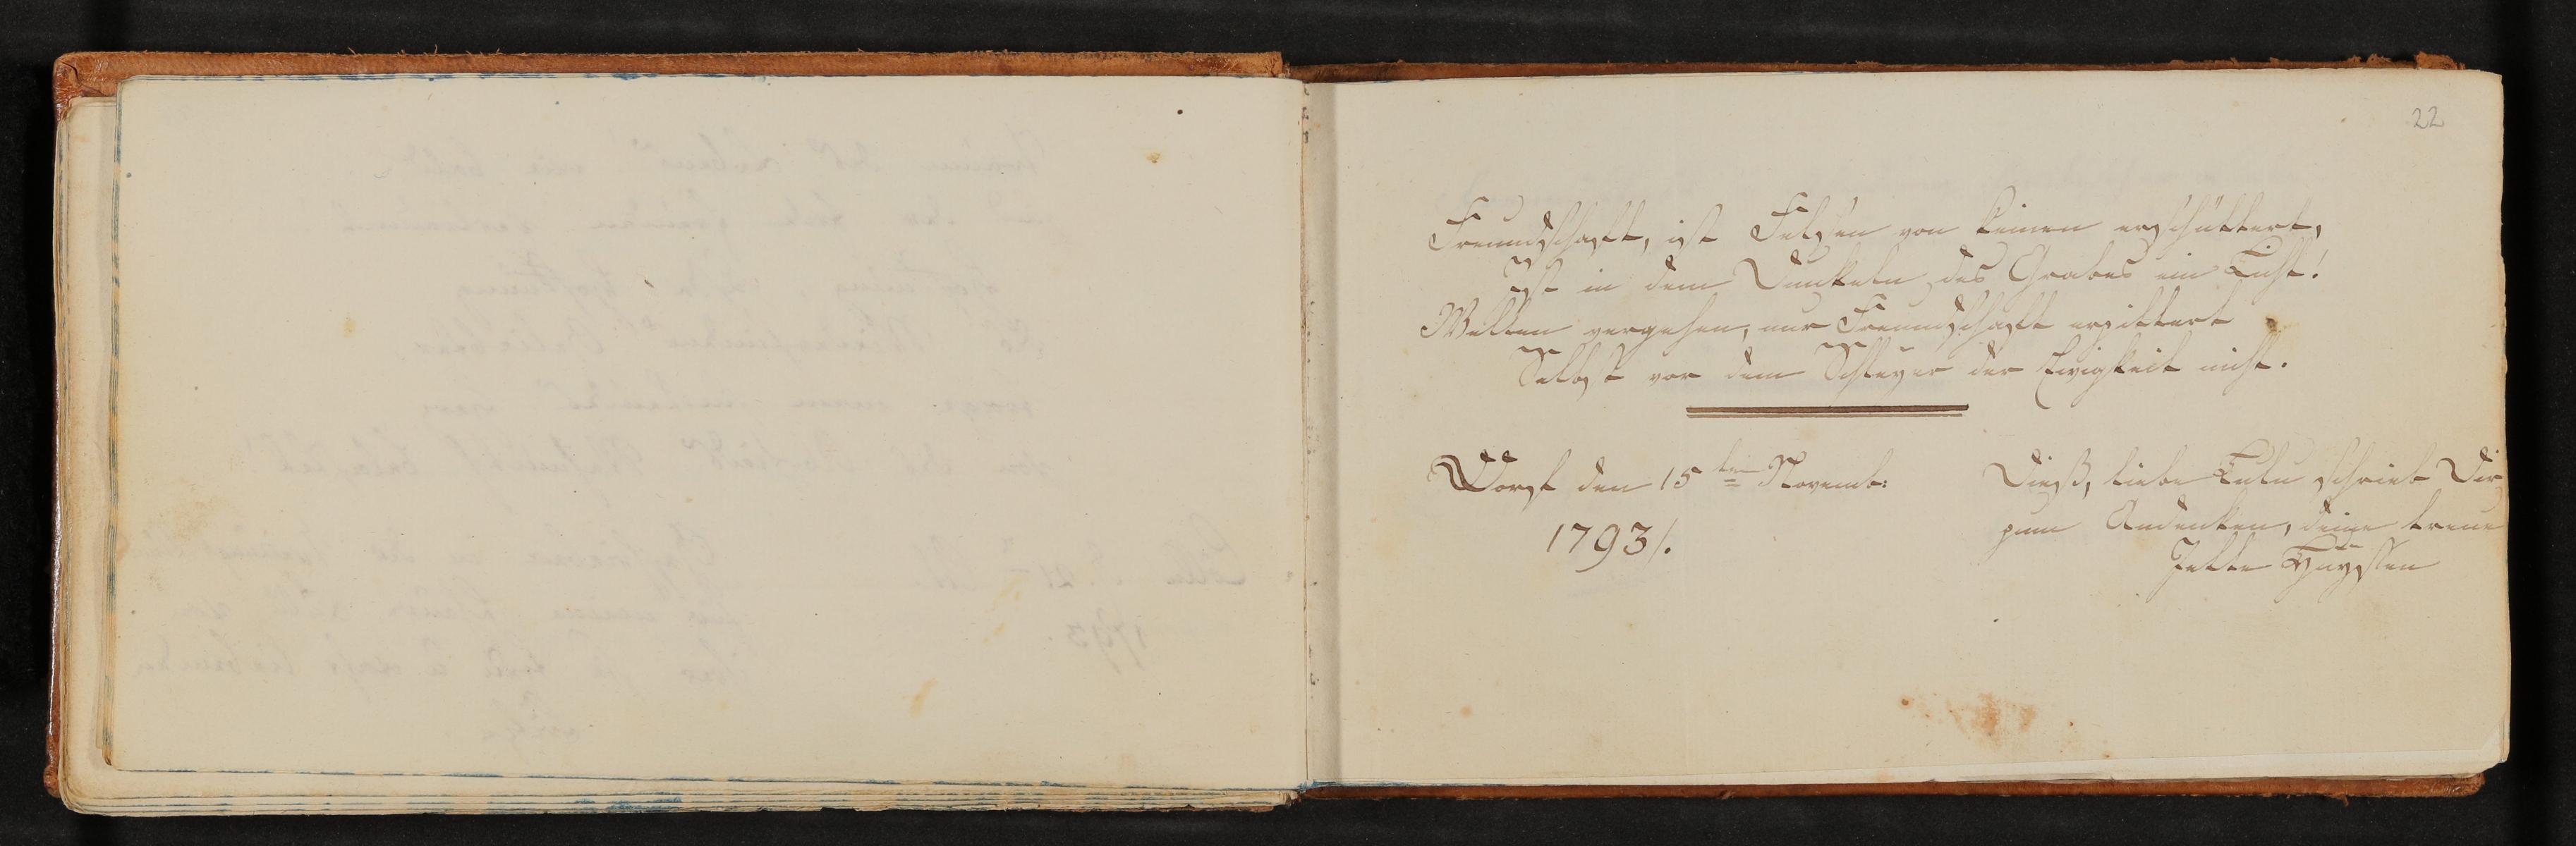 22
Freundschaft, ist Felsen von keinen erschüttert,
Ist in dem Dunkeln des Grabes ein Licht!
Welten vergehen, nur Freundschaft erzittert
Selbst vor dem Schleyer der Ewigkeit nicht.
Vorst den 15ten Novemb:
1793/.
Dieß, liebe Lulu schrieb Dir
zum Andenken, deine treue
Jette Huyssen